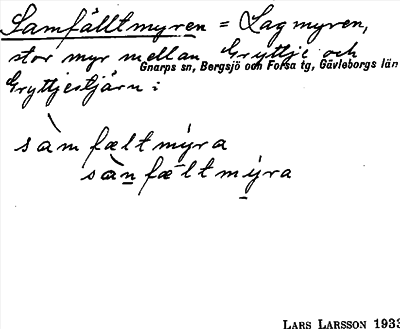 Samfälltmyren = Lagmyren,
stor myr mellan Gryttje och
Gnarps sn, Bergsjö och Forsa tg, Gävleborgs län
Gryttjestjärn:
sàm fæltmýra
sàn fæltmýra
LARS LARSSON 1933